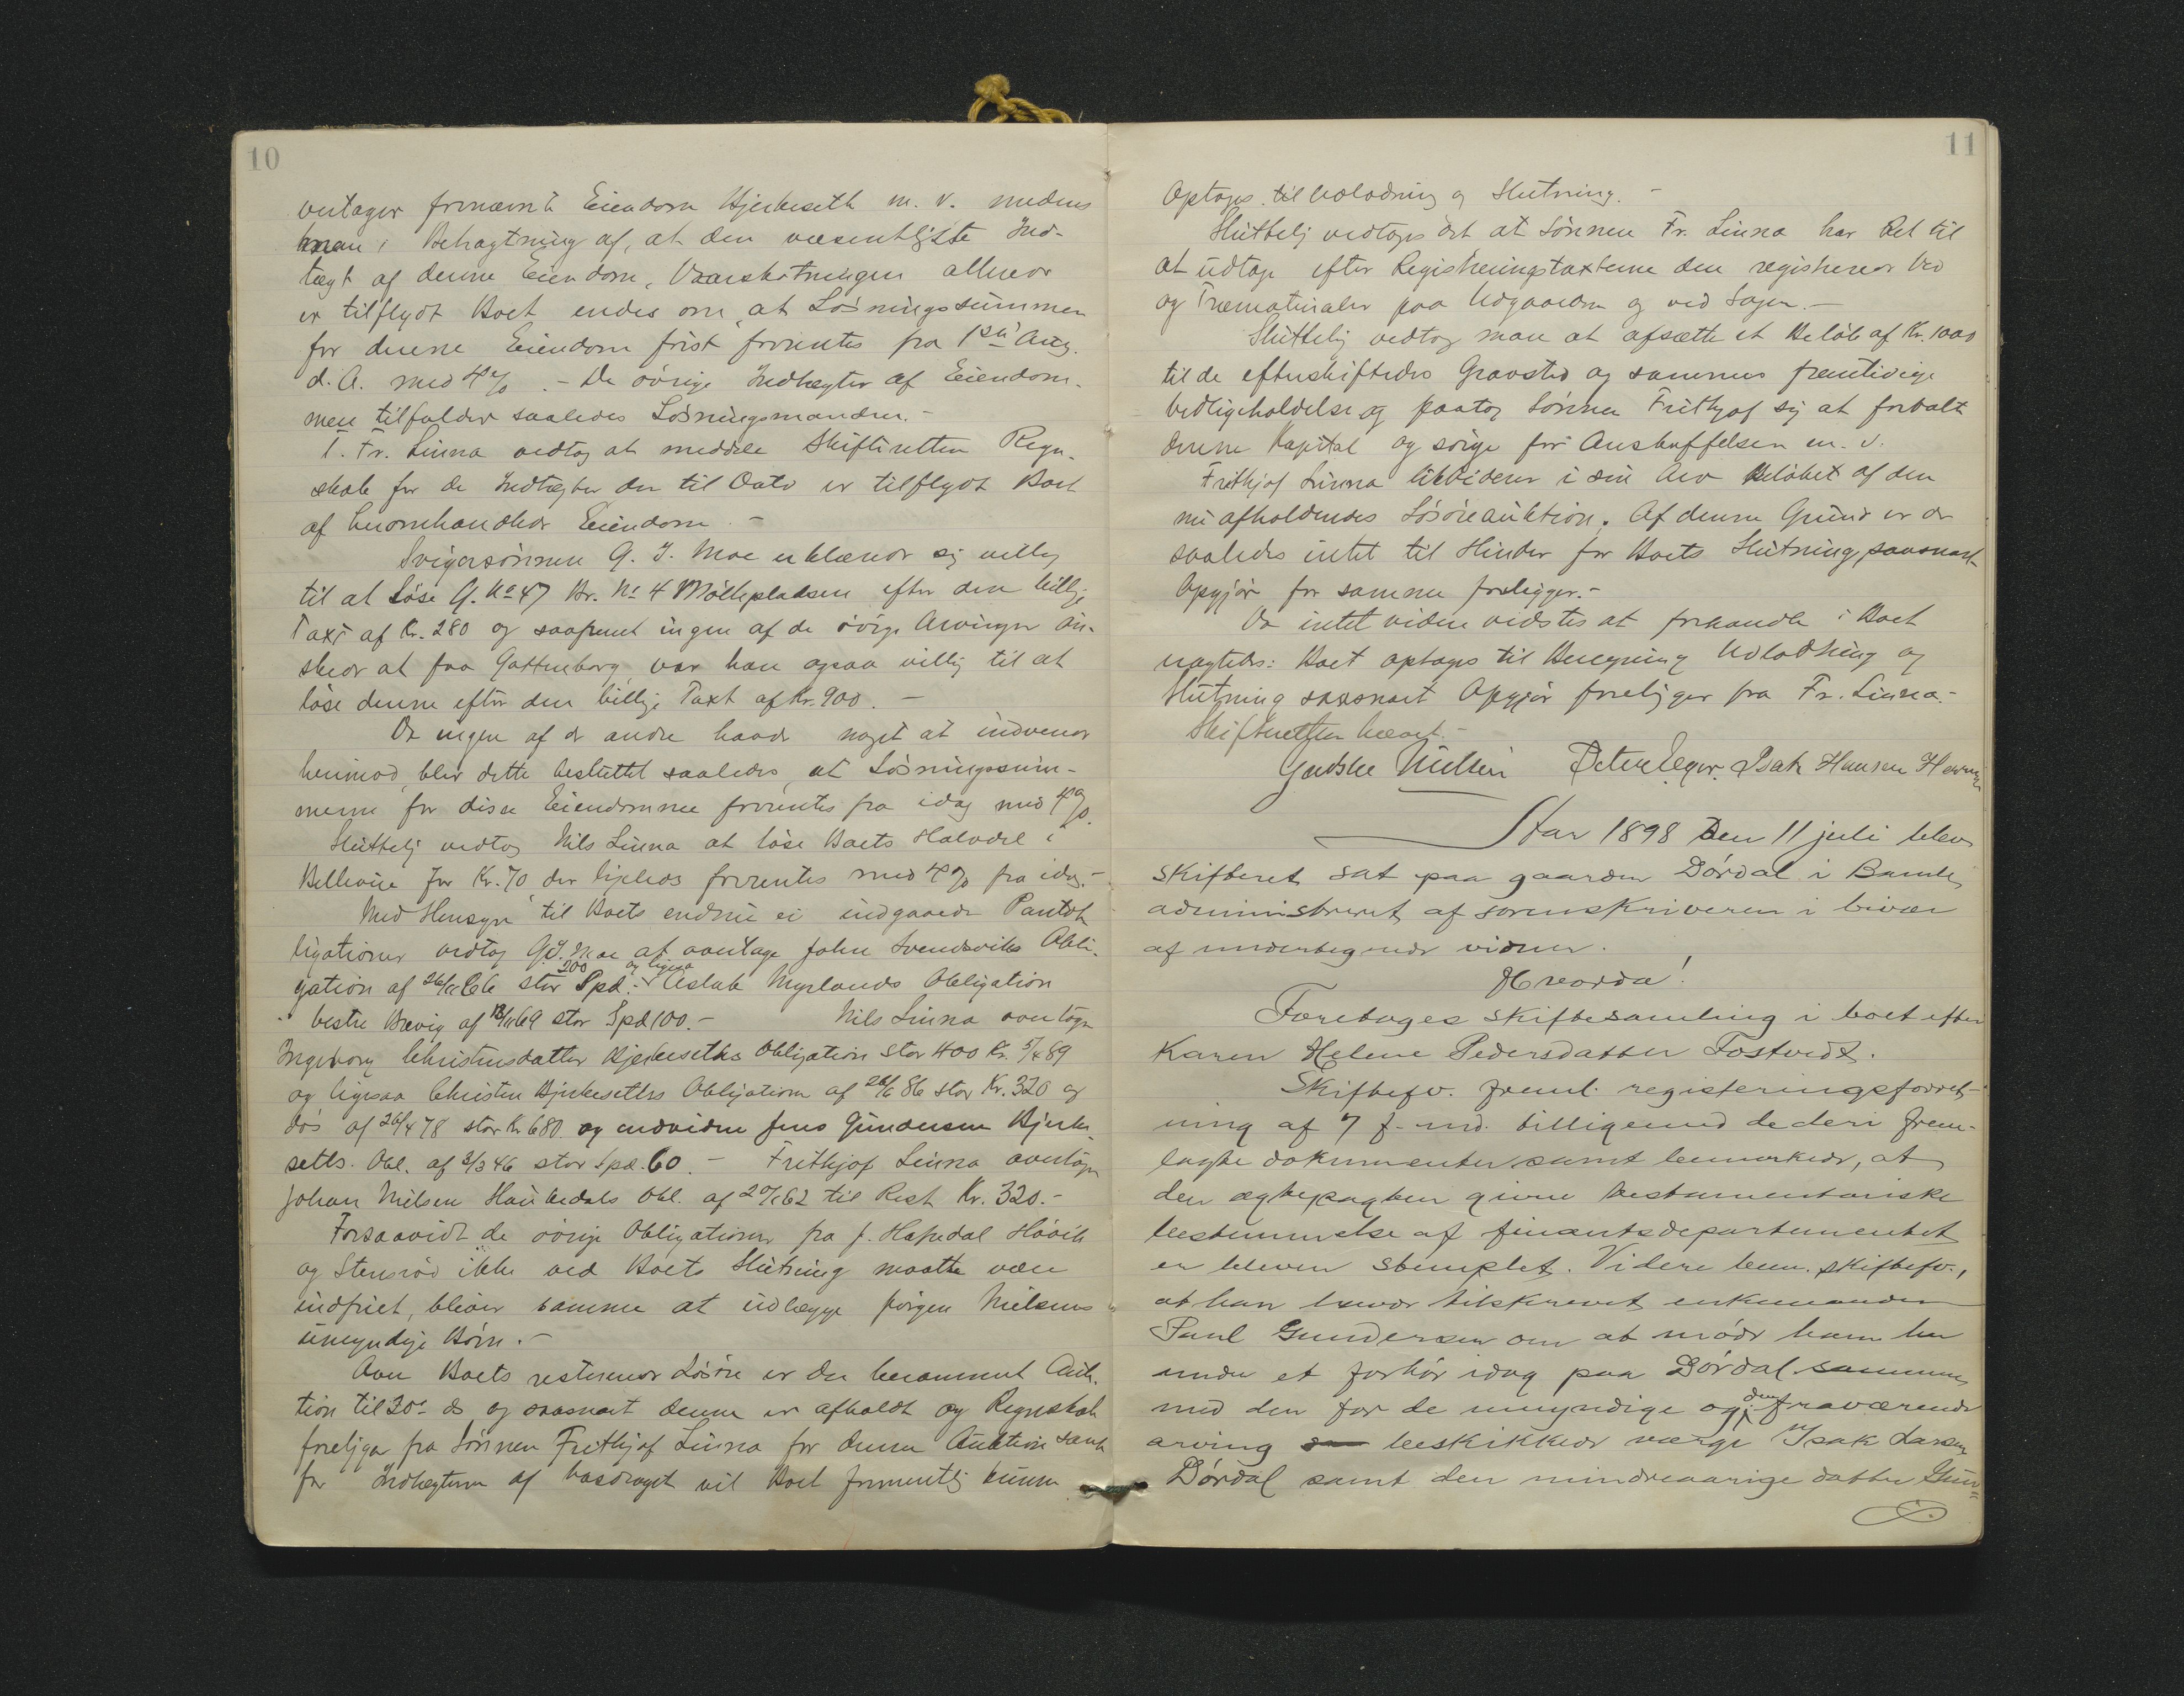 10
vertager fornævnte Eiendom Hjerkeseth m. v. medens
man i Betragtning af, at den væsentligste Ind-
tægt af denne Eiendom, Vaarskatningen allerede
er tilflydt Boet endes om, at Løsningssummen
for denne Eiendom först forrentes fra 1ste Aug.
d. A. med 4 %. - De övrige Indtægter af Eiendom-
men tilfalder saaledes Lösningsmanden. -
T. Fr. Linna vedtog at meddele Skifteretten Regn-
skab for de Indtægter der til Dato er tilflydt Boet
af Eiendom. -
Svigersönnen G. J. Moe erklærede sig villig
til at löse G. No 47 Br. No 4 Möllepladsen efter den billige
Taxt af Kr. 280 og saafremt ingen af de övrige Arvinger ön-
skede at faa Gottenborg, var han ogsaa villig til at
löse denne efter den billige Taxt af Kr. 900. -
Da ingen af de andre havde noget at indvende
herimod, blev dette besluttet saaledes, at Lösningssum-
merne for disse Eiendomme forrentes fra idag med 4 %.
Sluttelig vedtog Nils Linna at löse Boets Halvdel i
Bellevüe for Kr. 70 der ligeledes forrentes med 4 % fra idag. -
Med Hensyn til Boets endnu ei indgaaede Pantob-
ligationer vedtog G. J. Moe at overtage John Svendsviks Obli-
gation af 26/ 66 stor 200 Spd. og ligesaa Aslak Myrlands Obligation
i vestre Brevig af 69 stor Spd 100. - Nils Linna overtager
Ingeborg Christensdatter Hjerkeseths Obligation stor 400 Kr. 5/4 89
og ligesaa Christen Hjerkeseths Obligation af 26/6 86 stor Kr. 320 og
do af 26/4 78 stor Kr 680 og endvidere Jens Gundersen Hjerke-
seths Obl. af 3/3 46 stor Spd. 60. - Frithjof Linna overtager
Johan Nielsen Haukedals Obl. af 62 til Rest Kr. 320. -
Forsaavidt de övrige Obligationer fra J. Hafsedal Haavik
og Stensröd ikke ved Boets Slutning maatte være
indfriet, bliver samme at udlægge Jörgen Nielsens
umyndige Börn. -
Over Boets resterende Lösöre er der berammet Auk-
tion til 30te ds og saasnart denne er afholdt og Regnskab
foreligger fra Sönnen Frithjof Linna for denne Auktion samt
for Indtægterne af Vasdraget vil Boet formentlig kunne
11
Optages til Udlodning og Slutning. -
Sluttelig vedtages det at Sönnen Fr. Linna har Ret til
at udtage efter Registreringstaxterne den registrerede Ved
og Træmaterialer paa Udgaarden og ved Sagen. -
Sluttelig vedtog man at afsætte et Belöb af Kr. 1000
til de efterskiftedes Gravsted og sammes fremtidige
Vedligeholdelse og paatog Sönnen Frithjof sig at forvalte
denne Kapital og sörge for Anskaffelsen m. v.
Frithjof Linna likviderer i sin Arv Belöbet af den
nu afholdendes Lösöreauktion. Af denne Grund er der
saaledes intet til Hinder for Boets Slutning, saasnart
Opgjör for samme foreligger. -
Da intet videre vidstes at forhandle i Boet
vagtedes: Boet optages til Beregning Udlodning og
Slutning saasnart Opgjör foreligger fra Fr. Linna. -
Skifteretten hævet. -
Nielsen Peter Isak Hansen
Aar 1898 den 11 juli blev
skifteret sat paa gaarden Dördal i Bamle,
administreret af sorenskriveren i bivær
af undertegnede vidner.
Hvorda!
Foretoges skiftesamling i boet efter
Karen Helene Pedersdatter Tostvedt.
Skiftefv. freml. registeringsforret-
ning af 7 f. md. tilligemed de deri frem-
lagte dokumenter samt bemærkede, at
den ægtepagten givne testamentariske
bestemmelse af finantsdepartementet
er bleven stemplet. Videre bem. skiftefv.,
at han havde tilskrevet enkemanden
Paul Gundersen om at möde ham her
under et forhör idag paa Dördal sammen
med den for de umyndige og den fraværende
arving beskikkede værge Isak Larsen
Dördal samt den mindreaarige datter Gun-